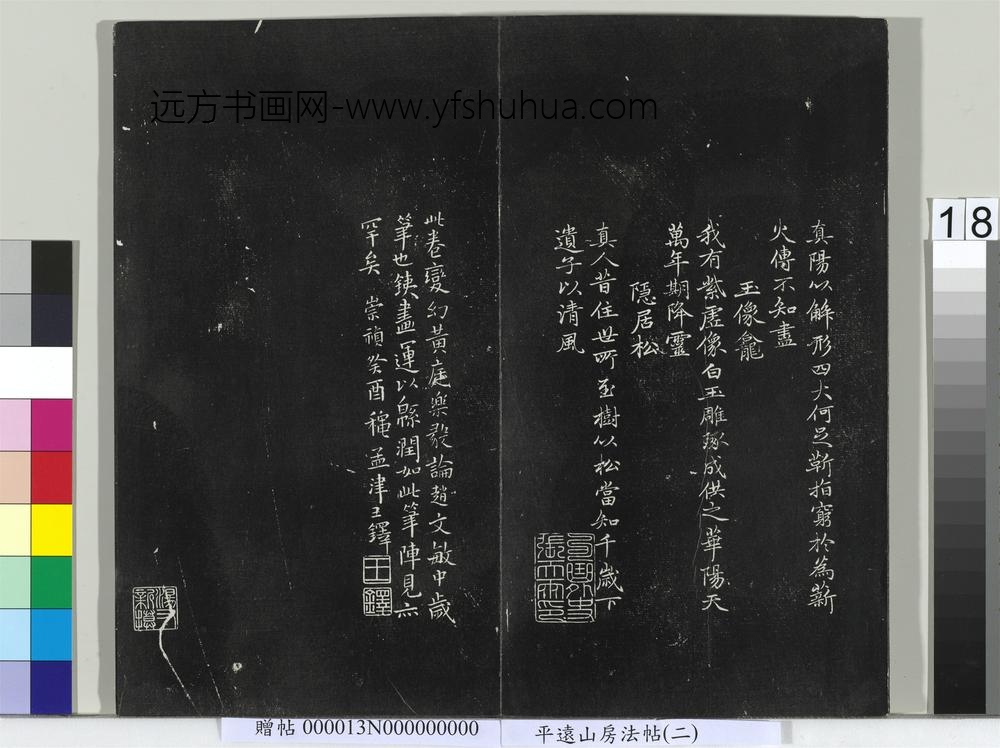 远方书画网-www.yfshuhua.com
真陽以解形四大何足靳指窮於為薪
火傳不知盡
玉像龕
我有紫虛像白玉雕琢成供之華陽天
萬年期降靈
隱居松
真人昔住世所至樹以松當知千歲下
遺子以清風
此卷變幻黃庭樂毅論趙文敏中歲
筆也鐵畫運以縣潤如此筆陣見亦
罕矣 崇禎癸酉穐孟津王鐸
王鐸
18
贈帖 000013N000000000
平遠山房法帖(二)